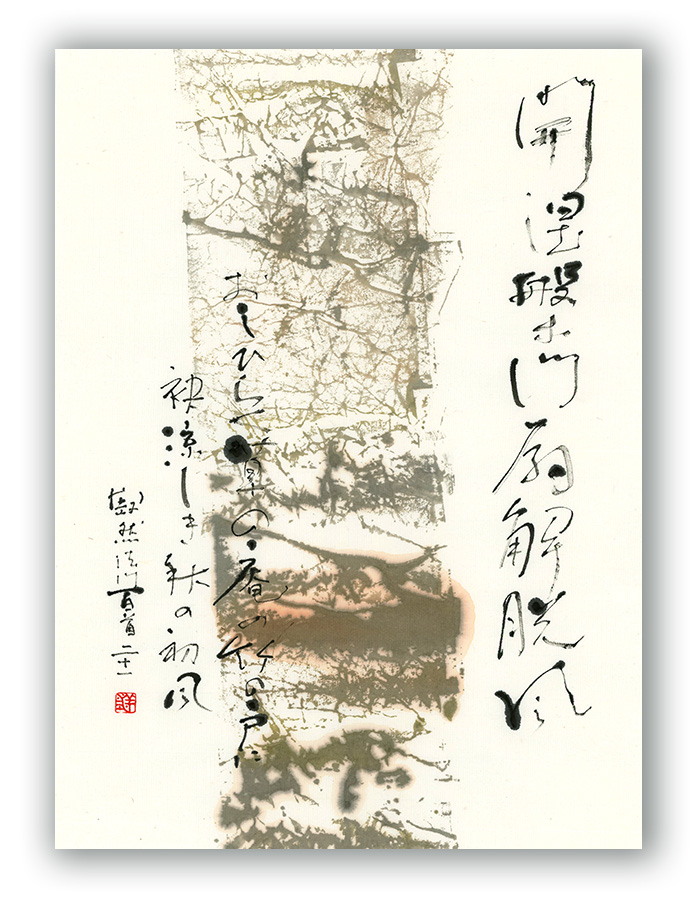 開涅槃門扇解脱風
おしひらく草の庵の竹の戸に
袂涼しき秋の初風
寂然法門百首 二十一